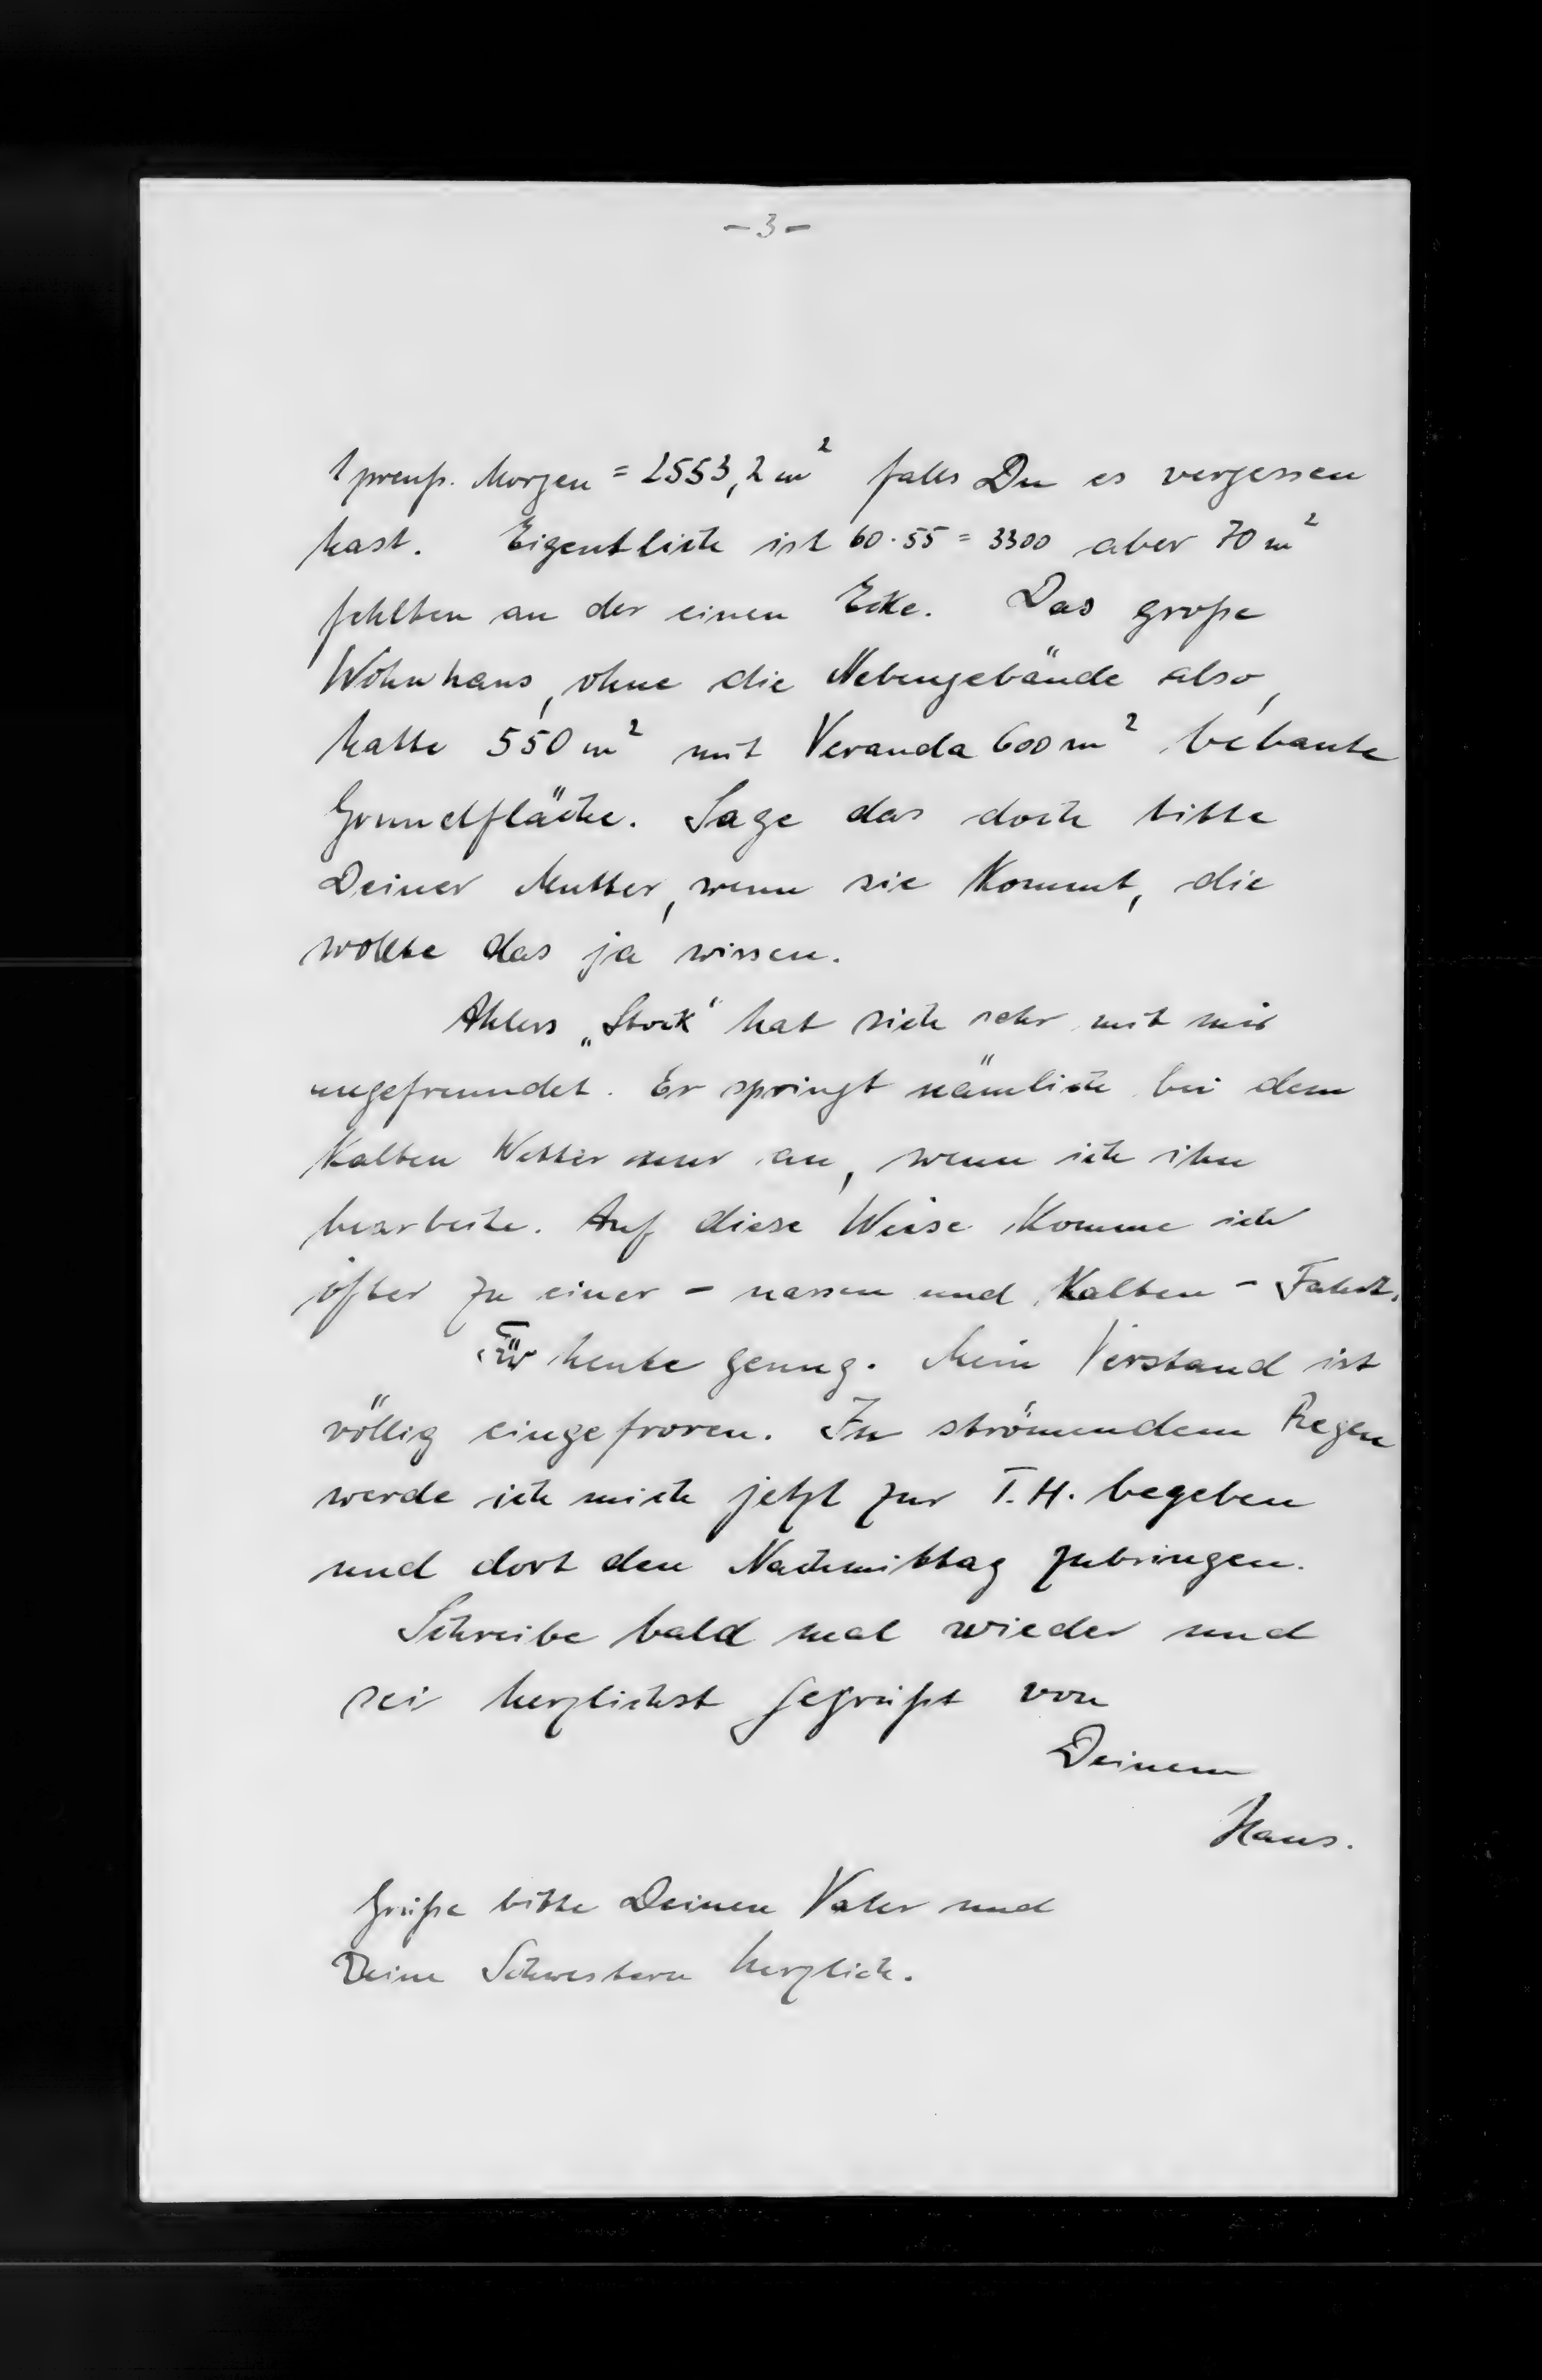 - 3 -
1 preuß. Morgen = 2553,2 m² falls Du es vergessen
hast. Eigentlich ist 60·55 = 3300 aber 70 m²
fehlten an der einen Ecke. Das große
Wohnhaus, ohne die Nebengebäude also,
hatte 550 m² mit Veranda 600 m² bebaute
Grundfläche. Sage das doch bitte
Deiner Mutter, wenn sie kommt, die
wollte das ja wissen.
Ahlers „Stock“ hat sich sehr mit mir
angefreundet. Er springt nämlich bei dem
kalten Wetter nur an, wenn ich ihn
bearbeite. Auf diese Weise komme ich
öfter zu einer - nassen und kalten - Fahrt.
Für heute genug. Mein Verstand ist
völlig eingefroren. In strömendem Regen
werde ich mich jetzt zur T.H. begeben
und dort den Nachmittag zubringen.
Schreibe bald mal wieder und
sei herzlichst gegrüßt von
Deinem
Hans.
Grüße bitte Deinen Vater und
Deine Schwestern herzlich.